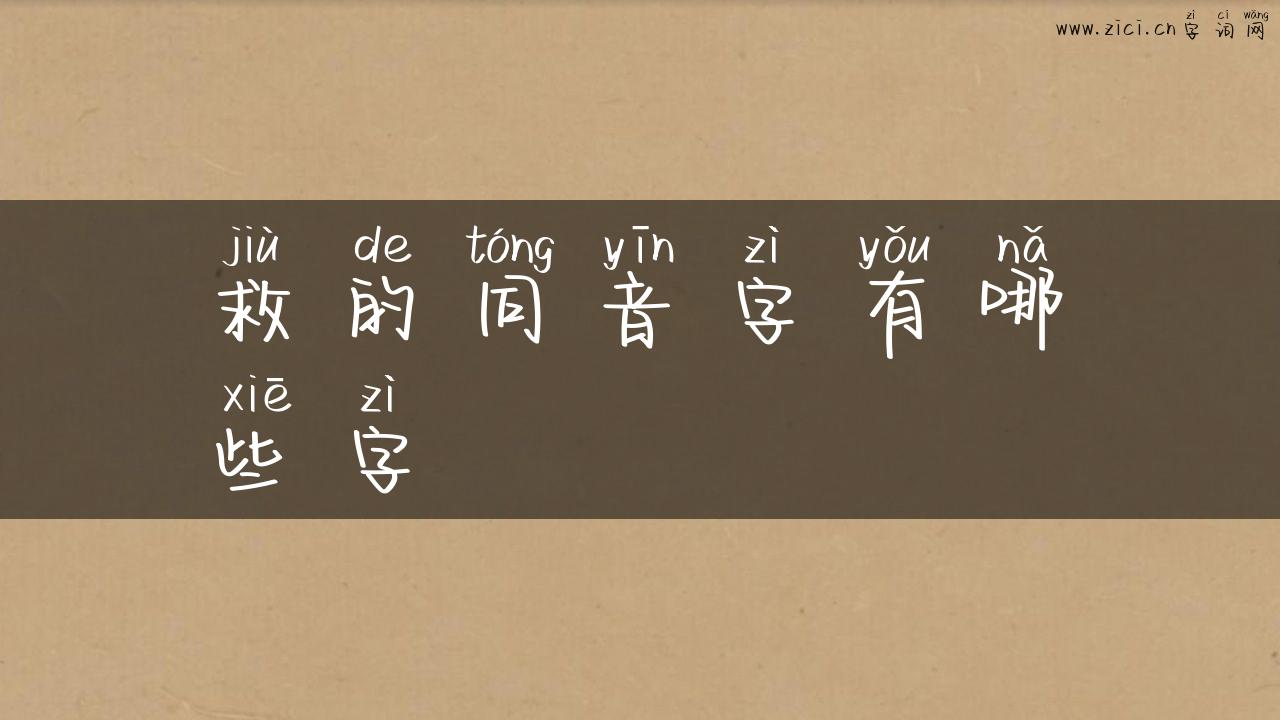 zì cí wǎng
www.zici.cn 字 词 网
jiù de tóng yīn zì yǒu nǎ
救 的 同 音 字 有 哪
xiē zì
些 字